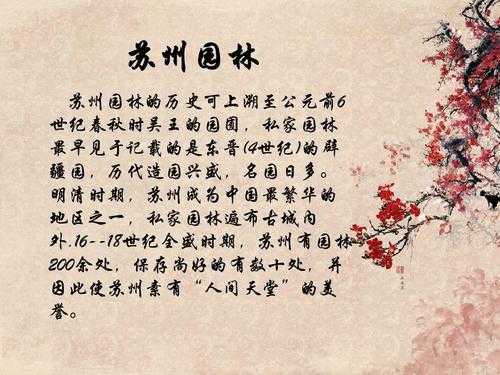 苏州园林
苏州园林的历史可上溯至公元前6
世纪春秋时吴王的园囿，私家园林
最早见于记载的是东晋(4世纪)的辟
疆园，历代造园兴盛，名园日多。
明清时期，苏州成为中国最繁华的
地区之一，私家园林遍布古城内
外.16--18世纪全盛时期，苏州有园林
200余处，保存尚好的有数十处，并
因此使苏州素有“人间天堂”的美
誉。